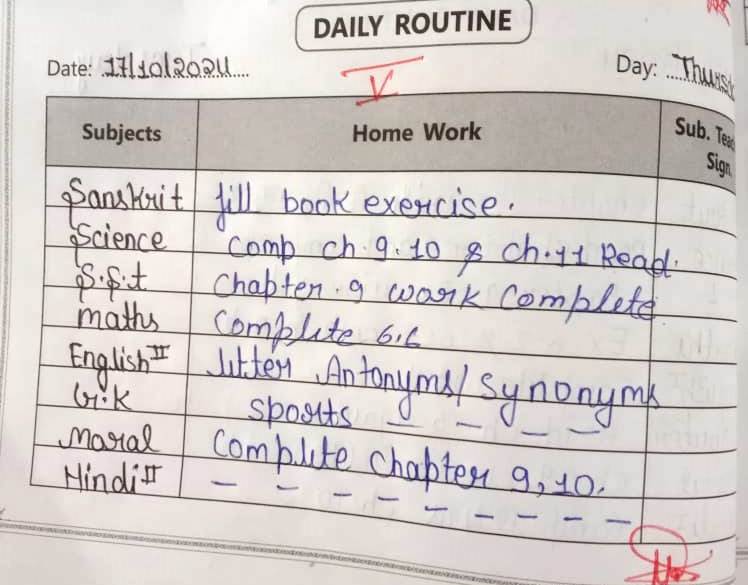 DAILY ROUTINE
Date: 17/10/2024 Day: Thurs
V
Subjects Home Work Sub. Tea Sign.
Sanskrit fill book exercise.
Science Comp ch.9.10 & ch.11 Read.
S.S.t Chapter.9 work complete.
maths Complete 6.6
English II letter Antonyms/synonyms
G.K sports - - - -
Moral Complete Chapter 9,10.
Hindi II - - - - - - - - -